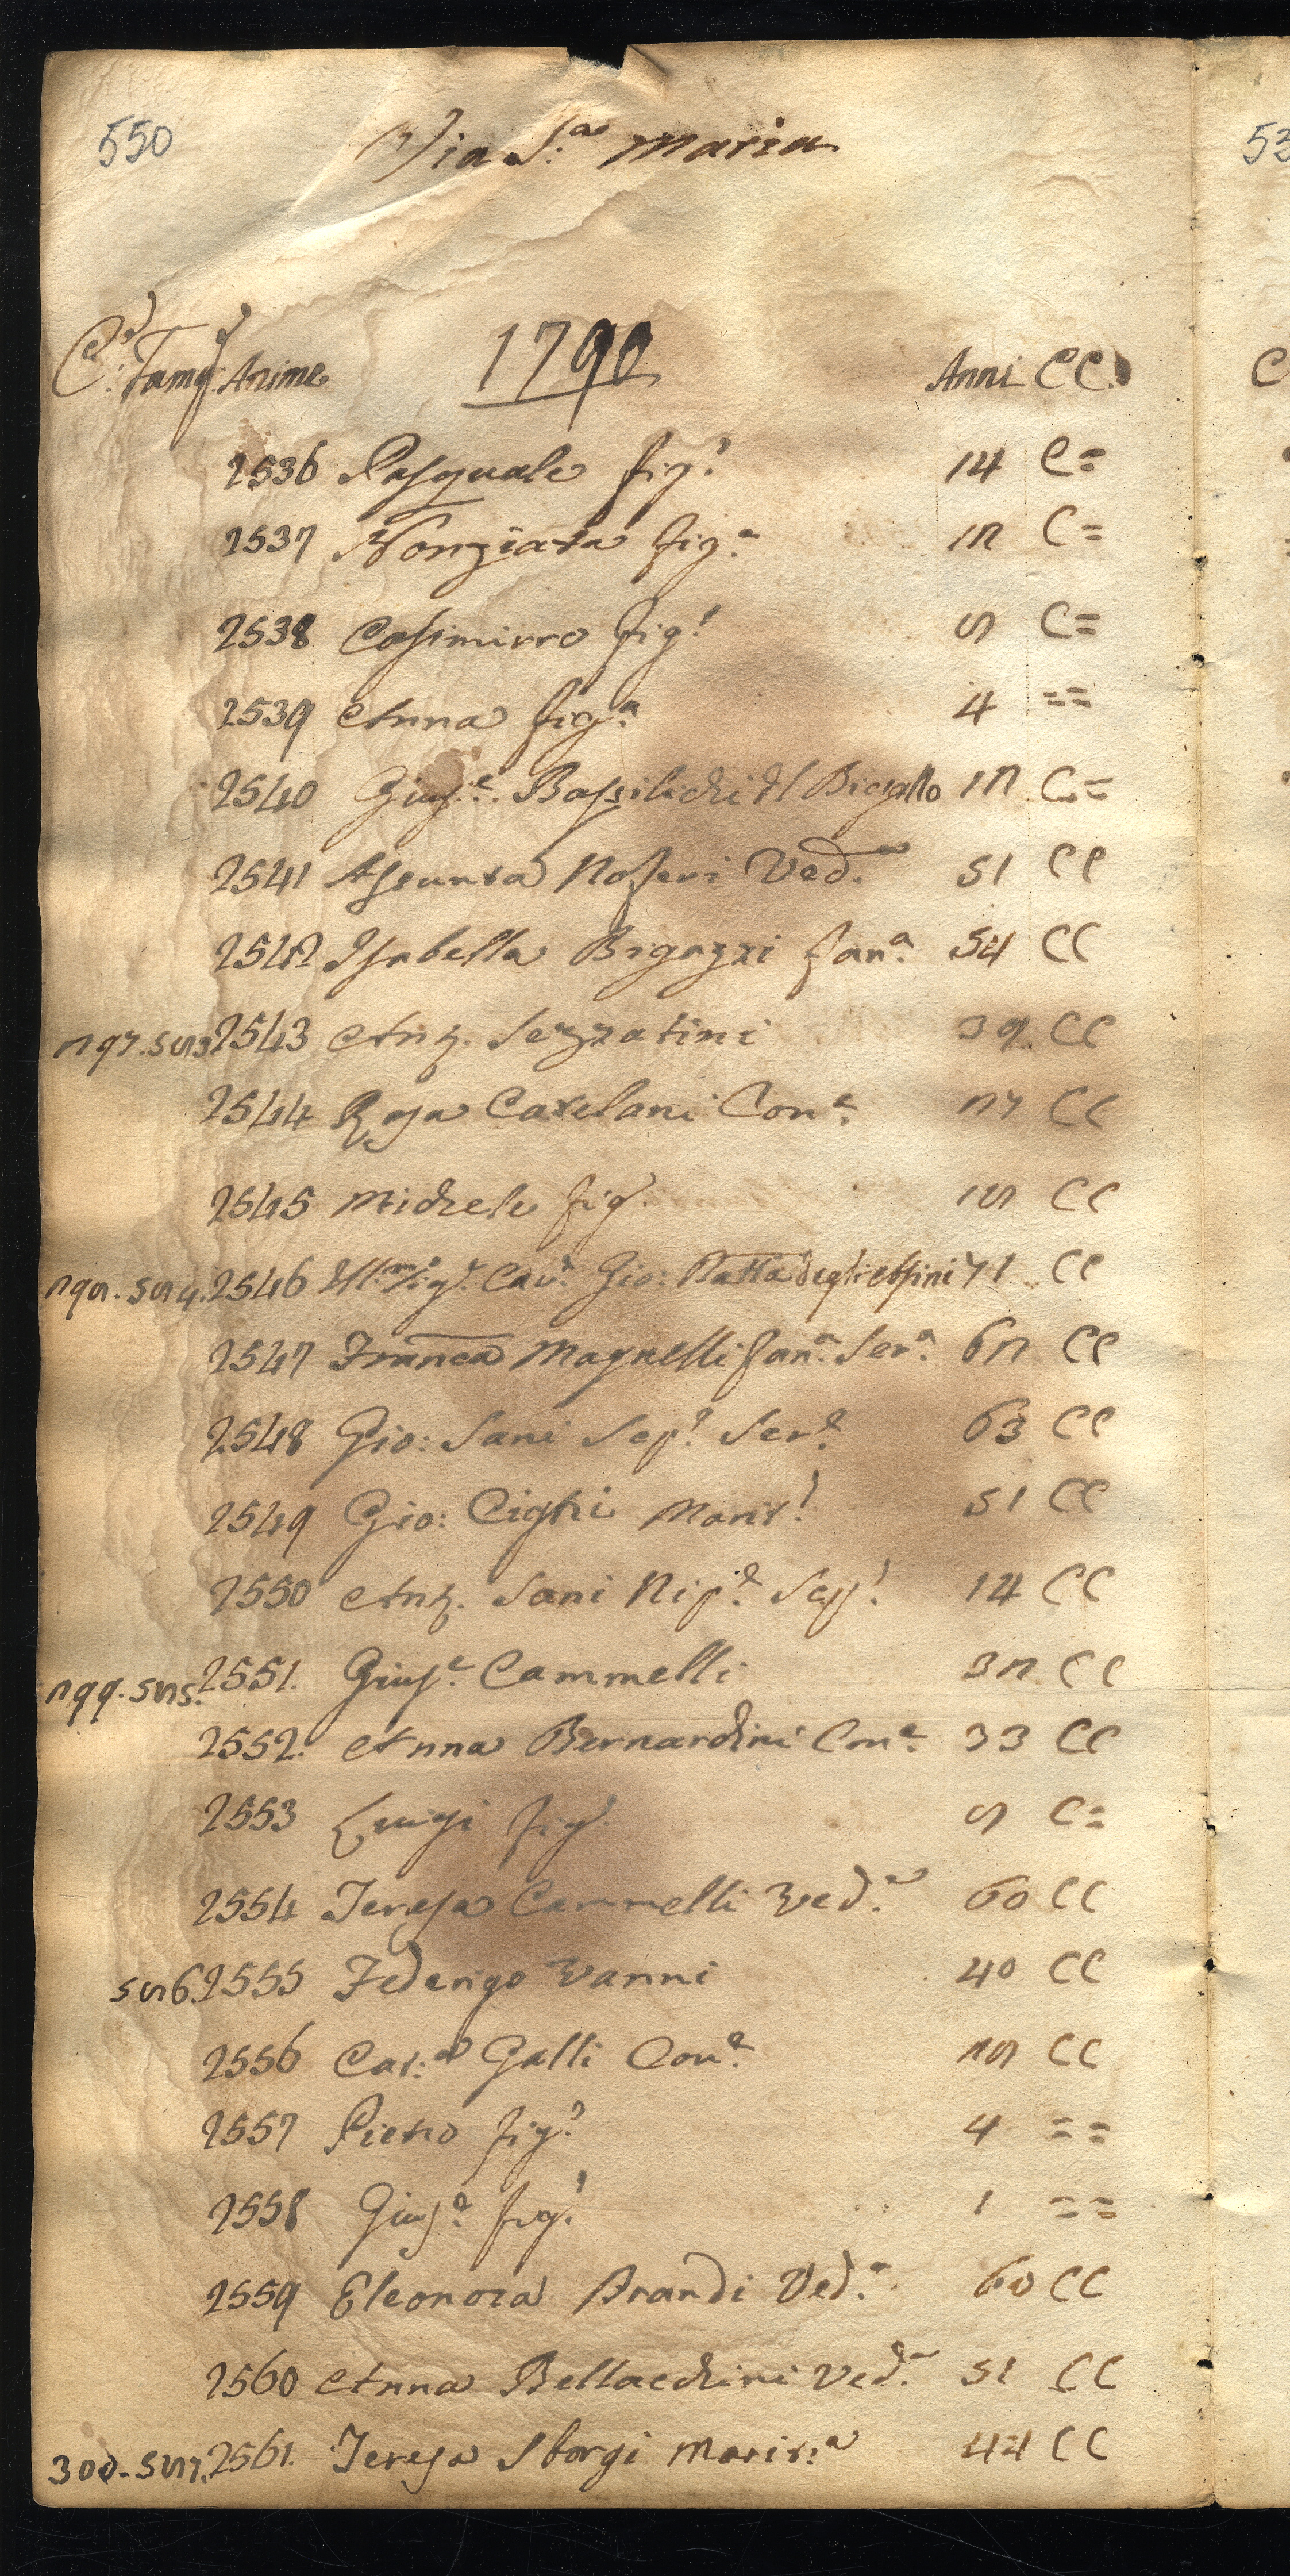 550
Via S:a Maria
1790
C:e Famg: Anime Anni CC.
2536 Pasquale fig:o 14 C=
2537 Nonziata fig:a 12 C=
2538 Casimirro fig:o 8 C=
2539 Anna fig:a 4 ==
2540 Gius:e Bassilichi dl Bigallo 12 C=
2541 Assunta Noferi Ved:a 51 CC
2542 Isabella Bigazzi fan:a 54 CC
297. 583 2543 Ant. Sezzatini 39 CC
2544 Rosa Catelani Con:e 27 CC
2545 Michele fig:o 18 CC
298. 584. 2546 Ill:mo Sig:r Cav:r Gio: Batta degli 71 CC
2547 Franca Magnelli fan:a Ser:a 62 CC
2548 Gio: Sani Sep:o Ser:e 63 CC
2549 Gio: Cighi Marit:o 51 CC
2550 Ant. Sani Nip:e Sep:o 14 CC
299. 585. 2551. Gius:e Cammelli 32 CC
2552. Anna Bernardini Con:e 33 CC
2553 Luigi fig:o 8 C=
2554 Teresa Cammelli Ved:a 60 CC
586. 2555 Federigo Vanni 40 CC
2556 Cat:a Galli Con:e 28 CC
2557 Pietro fig:o 4 ==
2558 Gius:e fig:o 1 ==
2559 Eleonora Brandi Ved:a 60 CC
2560 Anna Bellacchini Ved:a 51 CC
300. 587. 2561. Teresa Sborgi Marit:a 44 CC